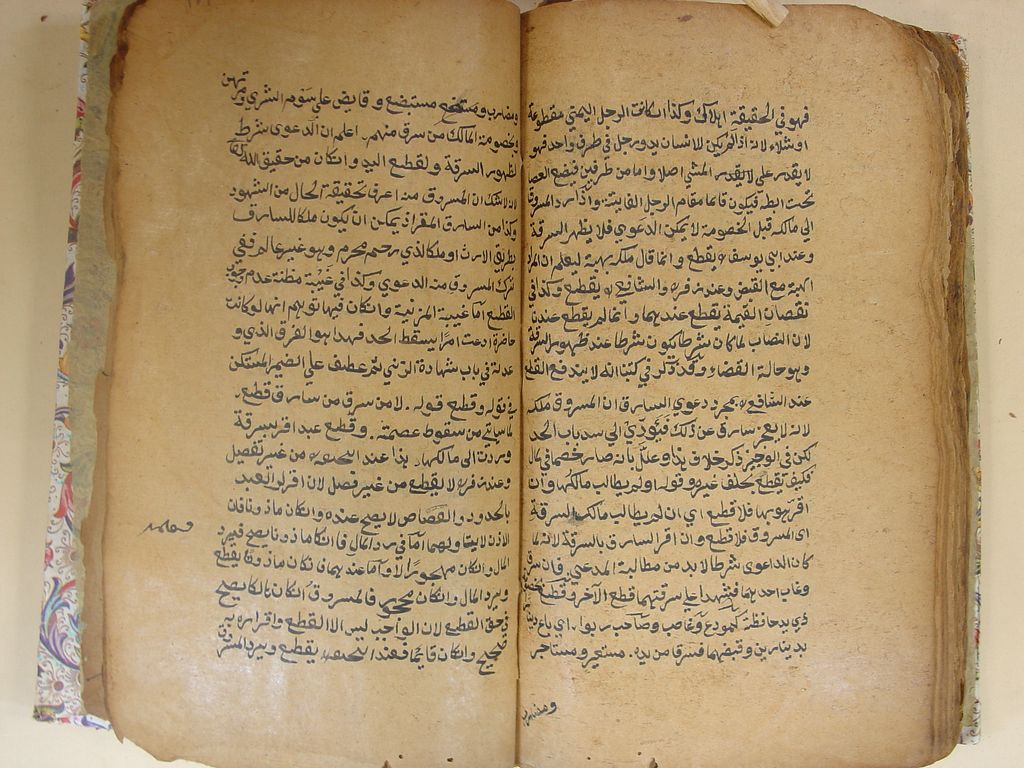 فهو في الحقيقة اهلاك وكذا ان كانت الرجل اليمنى مقطوعة
او شلاء لانه اذا لم يكن للانسان يد ورجل في طرف واحد فهو
لا يقدر على لا يقدر المشي اصلا واما من طرفين فيضع العصا
تحت ابطه فيكون قائما مقام الرجل الفايتة واذا رد المسروق
الى مالكه قبل الخصومة لا يمكن الدعوى فلا يظهر السرقة
وعند ابي يوسف يقطع وانما قال ملكه بهبة ليعلم ان المراد
الهبة مع القبض وعند زفر والشافعي يقطع وكذا في
نقصان القيمة يقطع عندهما وانما لم يقطع عندنا
لان النصاب لما كان شرطا يكون شرطا عند ظهور السرقة
وهو حالة القضاء وقد ذكر في كتبنا انه لا يندفع القطع
عند الشافعي بمجرد دعوى السارق ان المسروق ملكه
لانه لا يعجز سارق عن ذلك فيؤدي الى سد باب الحد
لكن في الوجيز ذكر خلاف هذا وعلل بانه صار خصما في المال
فكيف يقطع بحلف غيره وقوله ولم يطالب مالكها وان
اقر هو بها فلا قطع اي ان لم يطالب مالك السرقة
اي المسروق فلا قطع وان اقر السارق بالسرقة لانه لما
كان الدعوى شرطا لا بد من مطالبة المدعي فان سرقا
وغاب احدهما فشهدا على سرقتهما قطع الآخر وقطع بخصومة
ذي يد حافظة كمودع وغاصب وصاحب ربوا اي باع دينارا
بدينارين وقبضهما فسرقا من يده مستعير ومستاجر
ومضارب
ومضارب ومستبضع وقابض على سوم الشرى ومرتهن
بخصومة المالك من سرق منهم اعلم ان الدعوى شرط
لظهور السرقة ولقطع اليد وان كان من حقوق الله تعالى
لانه لا شك ان المسروق منه اعرف بحقيقة الحال من الشهود
وكذا من السارق المقر اذ يمكن ان يكون ملكا للسارق
بطريق الارث او ملكا لذي رحم محرم وهو غير عالم ففي
ترك المسروق منه الدعوى وكذا في غيبته مظنة عدم وجوب
القطع اما غيبة المزنية وان كان فيها توهم انها لو كانت
حاضرة ادعت امرا يسقط الحد فهذا هو الفرق الذي و
عدته في باب شهادة الزنى ثم عطف على الضمير المستكن
في قوله وقطع قوله لا من سرق من سارق قطع
لما ياتي من سقوط عصمته وقطع عبد اقر بسرقة
وردت الى مالكها هذا عند ابي حنيفة من غير تفصيل
وعند زفر لا يقطع من غير فصل لان اقرار العبد
بالحدود والقصاص لا يصح عنده وان كان ماذونا فان
الاذن لا يتناولهما اما في رد المال فان كان ماذونا يصح فيرد
المال وان كان مهجورا لا واما عندهما فان كان ماذونا يقطع
ويرد المال وان كان محجورا فالمسروق ان كان هالكا يصح
في حق القطع لان الواجب ليس الا القطع واقراره به
صحيح وان كان قايما فعند ابي حنيفة يقطع ويرد المسروق